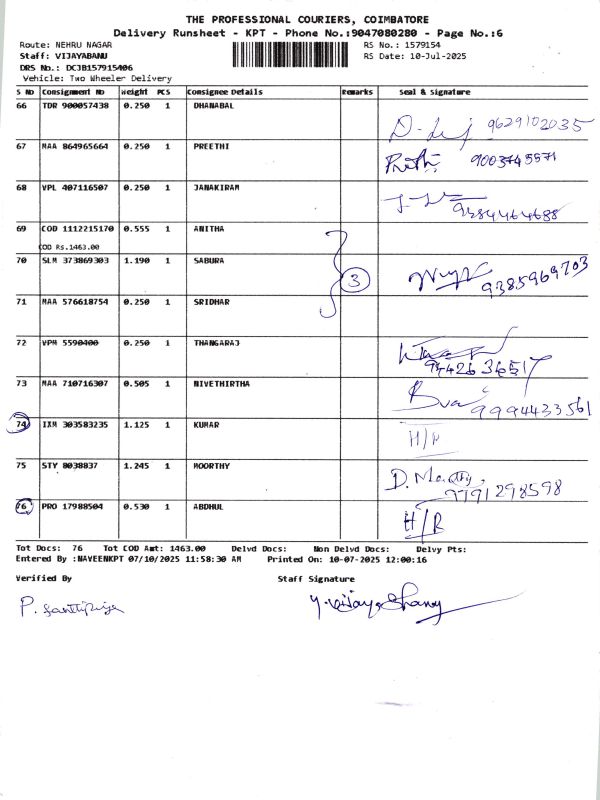 THE PROFESSIONAL COURIERS, COIMBATORE
Delivery Runsheet - KPT - Phone No.:9047080280 - Page No.:6
Route: NEHRU NAGAR RS No.: 1579154
Staff: VIJAYABANU RS Date: 10-Jul-2025
DRS No.: DCJB157915406
Vehicle: Two Wheeler Delivery
S No Consignment No Weight PCS Consignee Details Remarks Seal & Signature
66 TDR 900057438 0.250 1 DHANABAL
9629102035
67 MAA 864965664 0.250 1 PREETHI
Preethi 9003745571
68 VPL 407116507 0.250 1 JANAKIRAM
9384464688
69 COD 1112215170 0.555 1 ANITHA
COD Rs.1463.00
70 SLM 373869303 1.190 1 SABURA
3 9385969703
71 MAA 576618754 0.250 1 SRIDHAR
72 VPM 5590400 0.250 1 THANGARAJ
9442636517
73 MAA 710716307 0.505 1 NIVETHIRTHA
9994433561
74 IXM 303583235 1.125 1 KUMAR
H/R
75 STY 8038837 1.245 1 MOORTHY
D. Moorthy
9791298598
76 PRO 17988504 0.530 1 ABDHUL
H/R
Tot Docs: 76 Tot COD Amt: 1463.00 Delvd Docs: Non Delvd Docs: Delvy Pts:
Entered By :NAVEENKPT 07/10/2025 11:58:30 AM Printed On: 10-07-2025 12:00:16
Verified By Staff Signature